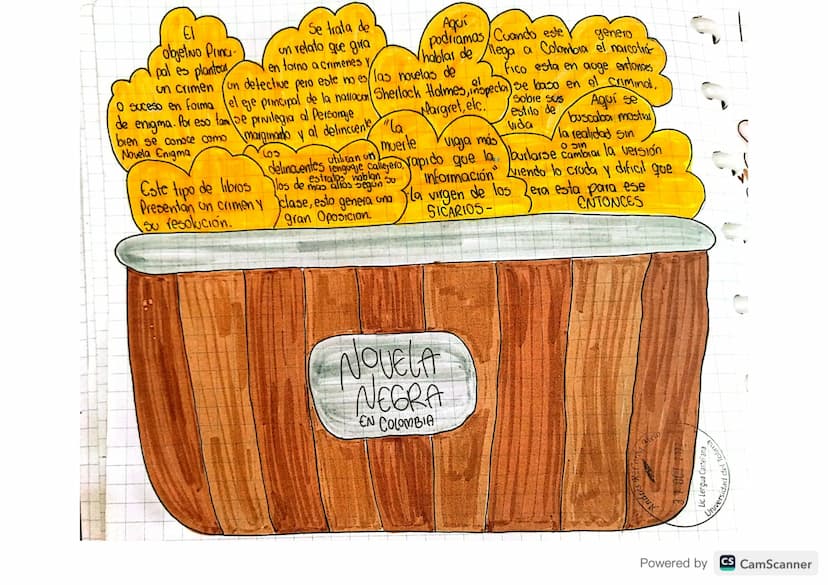 El
objetivo Princi-
pal es plantear
un crimen
o suceso en forma
de enigma. Por eso tam
bien se conoce como
Novela Enigma
Se trata de
un relato que gira
en torno a crimenes y
un detective pero este no es
el eje principal de la narracion
se privilegia al Personaje
marginado y al delincuente
Aquí
podriamos
hablar de
las novelas de
Sherlock Holmes, el inspector
Margret, etc.
Cuando este genero
llega a Colombia el narcotrá
fico esta en auge entonces
se baso en el criminal,
sobre sus
estilo de
vida
Aquí se
buscaban mostrar
la realidad sin
burlarse o sin cambiar la versión
viendo lo cruda y dificil que
era esta para ese
ENTONCES
Este tipo de libros
Presentan un crimen y
su resolución.
Los
delincuentes utilizan un
lenguaje callejero,
los de estratos más altos hablan según su
clase, esto genera una
gran Oposicion.
"La
muerte viaja más
rapido que la
información"
La virgen de los
SICARIOS-
NOVELA
NEGRA
EN COLOMBIA
Lic Lengua Castellana
Universidad del Tolima
Powered by CS CamScanner